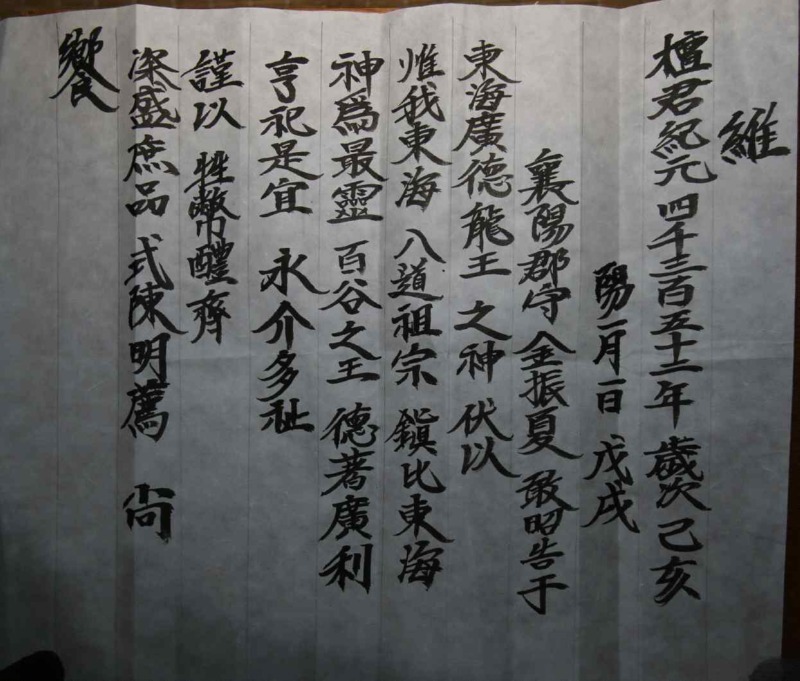 維
檀君紀元 四千三百五十二年 歲次 己亥
陽一月一日 戊戌
襄陽郡守 金振夏 敢昭告于
東海廣德龍王 之神 伏以
惟我東海 八道祖宗 鎭比東海
神爲最靈 百谷之王 德著廣利
亨祀是宜 永介多祉
謹以 牲幣醴齊
深盛庶品 式陳明薦 尙
饗